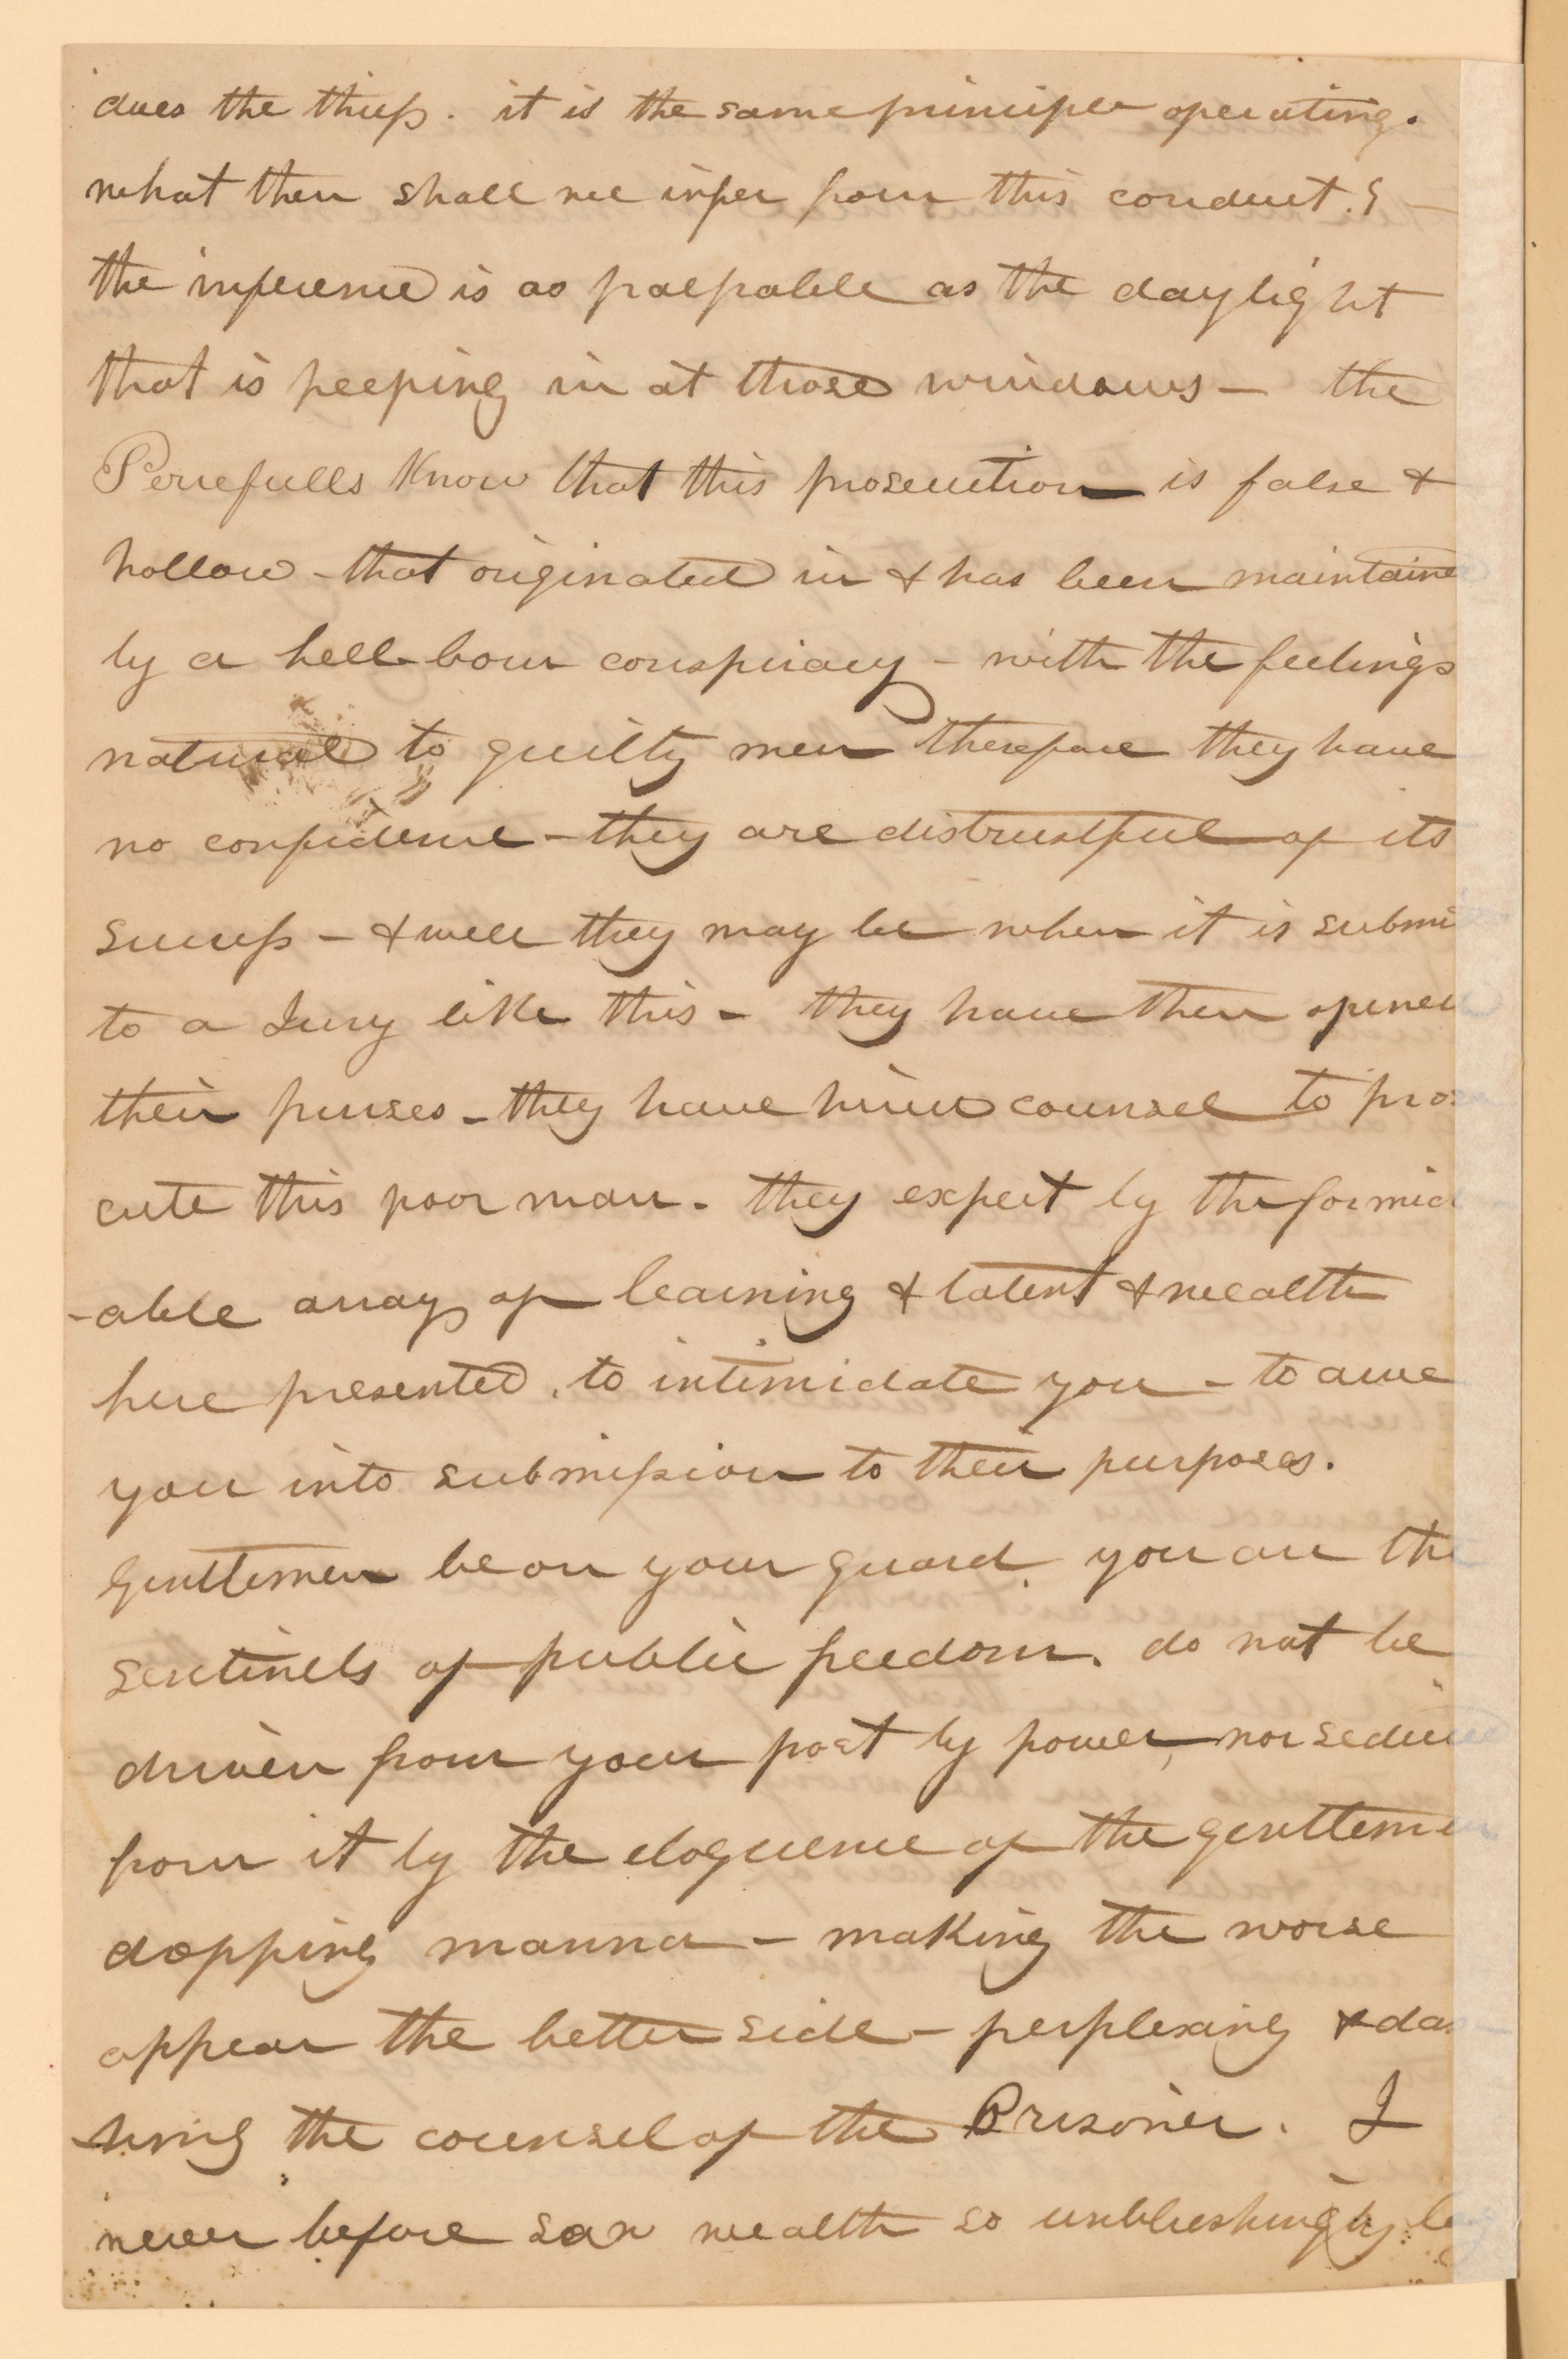 does the thief. it is the same principle operating.
what then shall we infer from this conduct?
the inference is as palpable as the daylight
that is peeping in at those windows — the
Perrefulls Know that this prosecution is false &
hollow - that originated in & has been maintaine
by a hell-born conspiracy - with the feelings
natural to guilty men therefore they have
no confidence - they are distrustful of its
success - & well they may be when it is submi
to a Jury like this - they have then opened
their purses - they have hired counsel to pros
cute this poor man. they expect by the formid
-able array of learning & talent & wealth
here presented, to intimidate you - to awe
you into submission to their purposes.
Gentlemen be on your guard. you are the
sentinels of public freedom. do not be
driven from your post by power, nor seduced
from it by the eloquence of the gentlemen
dropping manna - making the worse
appear the better side - perplexing & das
-hing the counsel of the Prisoner. I
never before saw wealth so unblushingly